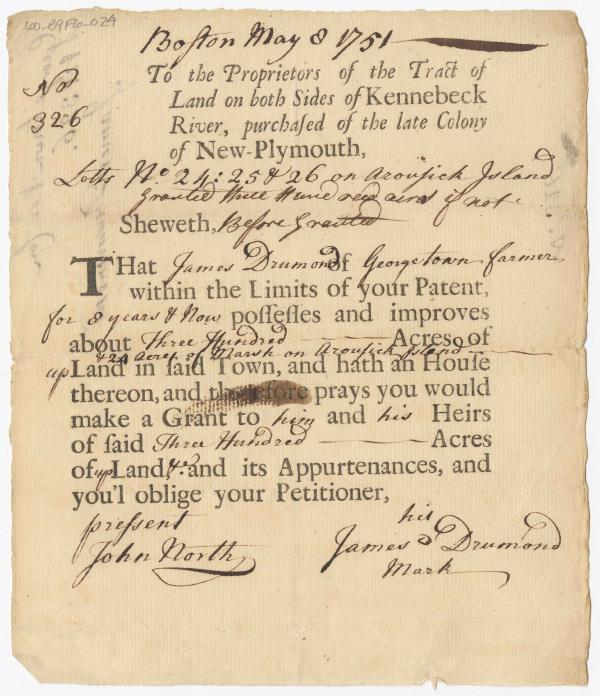 60-89F6-024
Boston May 8 1751
No
326
To the Proprietors of the Tract of
Land on both Sides of Kennebeck
River, purchaſed of the late Colony
of New-Plymouth,
Lotts No. 24: 25 & 26 on Arousick Island
Granted three Hundred acres if not
Sheweth, Before Granted
THat James Drumond of Georgetown farmer
within the Limits of your Patent,
for 8 years & Now poſſeſſes and improves
about Three Hundred Acres of
& 24 Acres of Marsh on Arousick Island
up Land in ſaid Town, and hath an Houſe
thereon, and therefore prays you would
make a Grant to him and his Heirs
of ſaid Three Hundred Acres
of up Land, &c. and its Appurtenances, and
you'l oblige your Petitioner,
pressent his
John North James Drumond
Mark